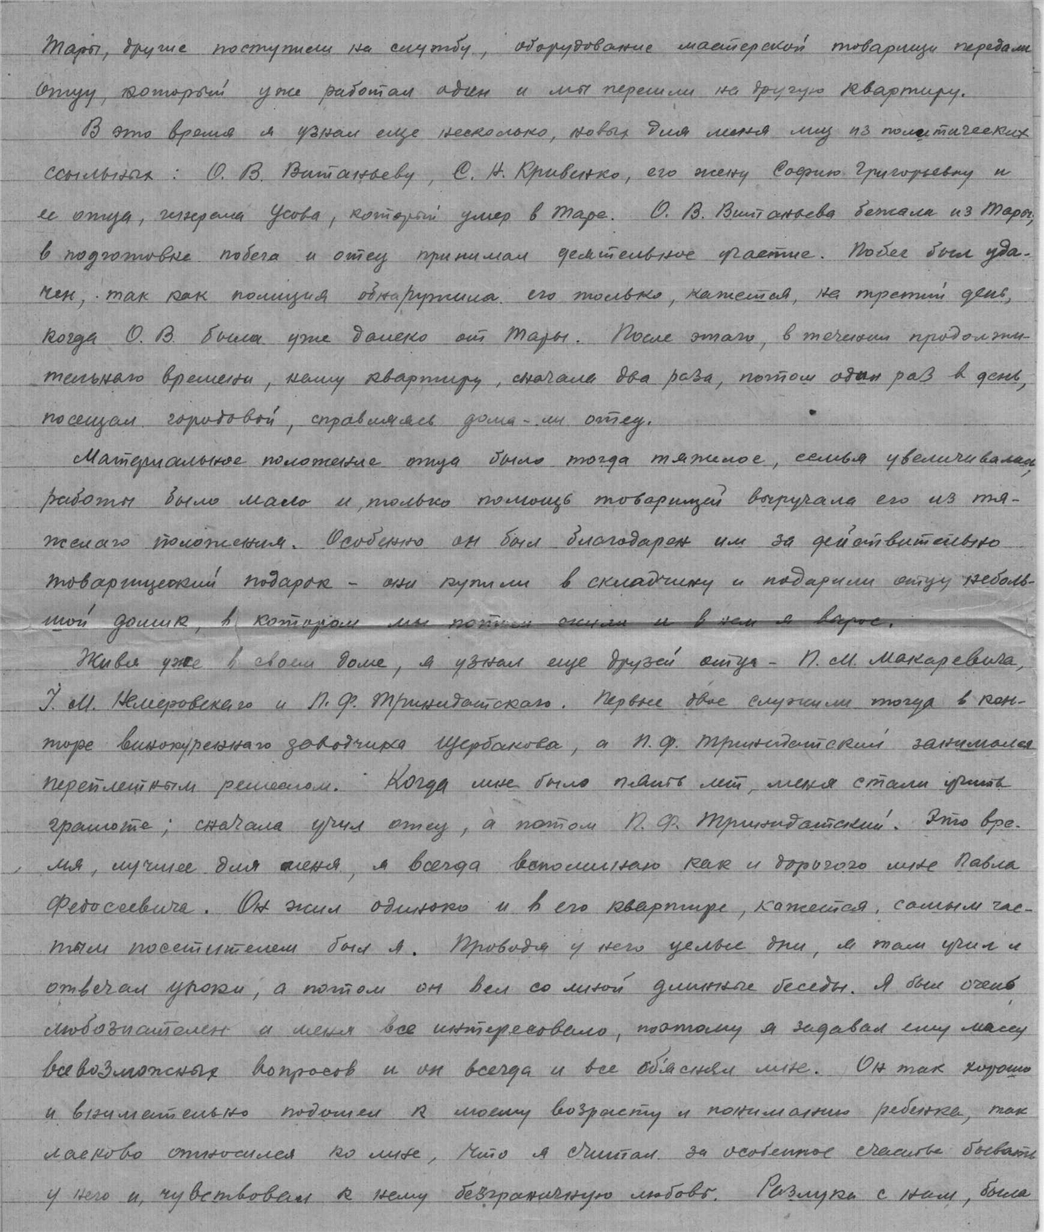 Тары, другие поступили на службу, оборудование мастерской товарищи передали
отцу, который уже работал один и мы перешли на другую квартиру.
В это время я узнал еще несколько, новых для меня лиц из политических
ссыльных: О. В. Витаньеву, С. Н. Кривенко, его жену Софию Григорьевну и
ее отца, генерала Усова, который умер в Таре. О. В. Витаньева бежала из Тары,
в подготовке побега и отец принимал деятельное участие. Побег был уда-
чен, так как полиция обнаружила его только, кажется, на третий день,
когда О. В. была уже далеко от Тары. После этаго, в течении продолжи-
тельнаго времени, нашу квартиру, сначала два раза, потом один раз в день,
посещал городовой, справляясь дома-ли отец.
Материальное положение отца было тогда тяжелое, семья увеличивалась,
работы было мало и, только помощь товарищей выручала его из тя-
желаго положения. Особенно он был благодарен им за действительно
товарищеский подарок - они купили в складчину и подарили отцу неболь-
шой домик, в котором мы потом жили и в нем я вырос.
Живя уже в своем доме, я узнал еще друзей отца - П. М. Макаревича,
I. М. Немеровскаго и П. Ф. Тринидатскаго. Первые двое служили тогда в кон-
торе винокуреннаго заводчика Щербакова, а П. Ф. Тринидатский занимался
переплетным ремеслом. Когда мне было пять лет, меня стали учить
грамоте; сначала учил отец, а потом П. Ф. Тринидатский. Это вре-
мя, лучшее для меня, я всегда вспоминаю как и дорогого мне Павла
Федосеевича. Он жил одиноко и в его квартире, кажется, самым час-
тым посетителем был я. Проводя у него целые дни, я там учил и
отвечал уроки, а потом он вел со мной длинные беседы. Я был очень
любознателен и меня все интересовало, поэтому я задавал ему массу
всевозможных вопросов и он всегда и все об'яснял мне. Он так хорошо
и внимательно подошел к моему возрасту и пониманию ребенка, так
ласково относился ко мне, что я считал за особенное счастье бывать
у него и, чувствовал к нему безграничную любовь. Разлука с ним, была